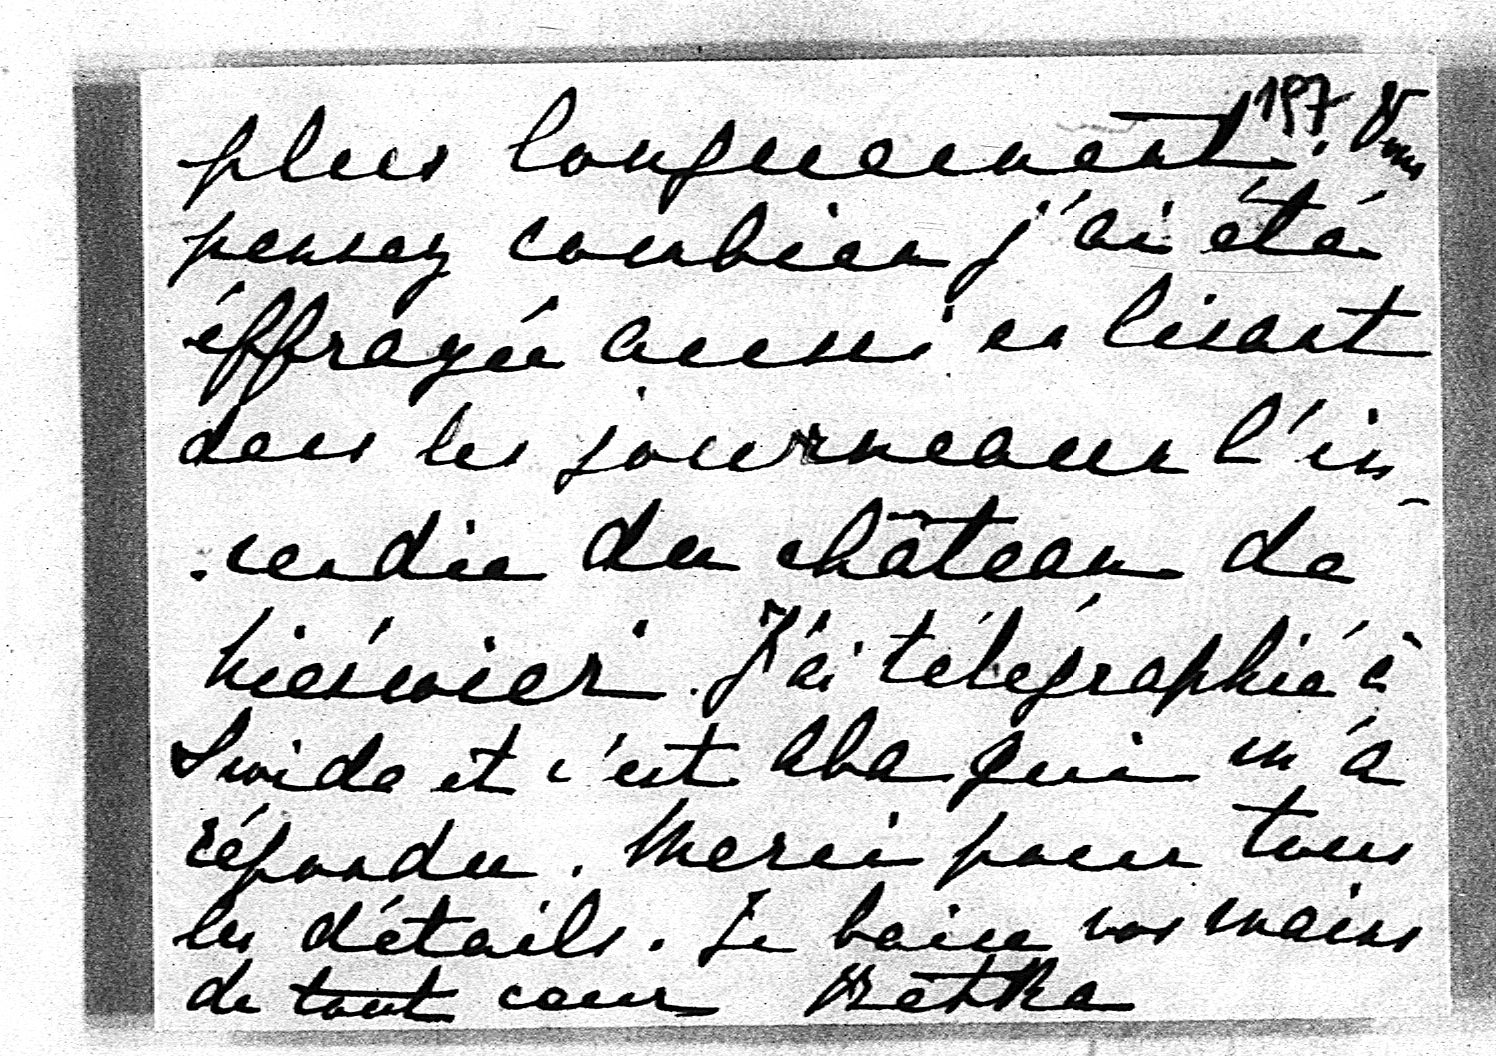 plus longuement. 197. Vous
pensez combien j'ai été
éffrayée aussi en lisant
dans les journeaux l'in-
cendie du château de
Nieświez. J'ai télégraphié à
Swida et c'est Aba qui m'a
répondu. Merci pour tous
les détails. Je baise vos mains
de tout cœur